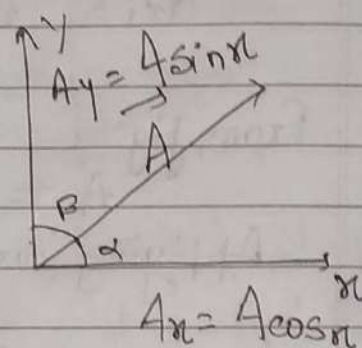 y
Ay = A sin x
A
β
α
x
Ax = A cos x